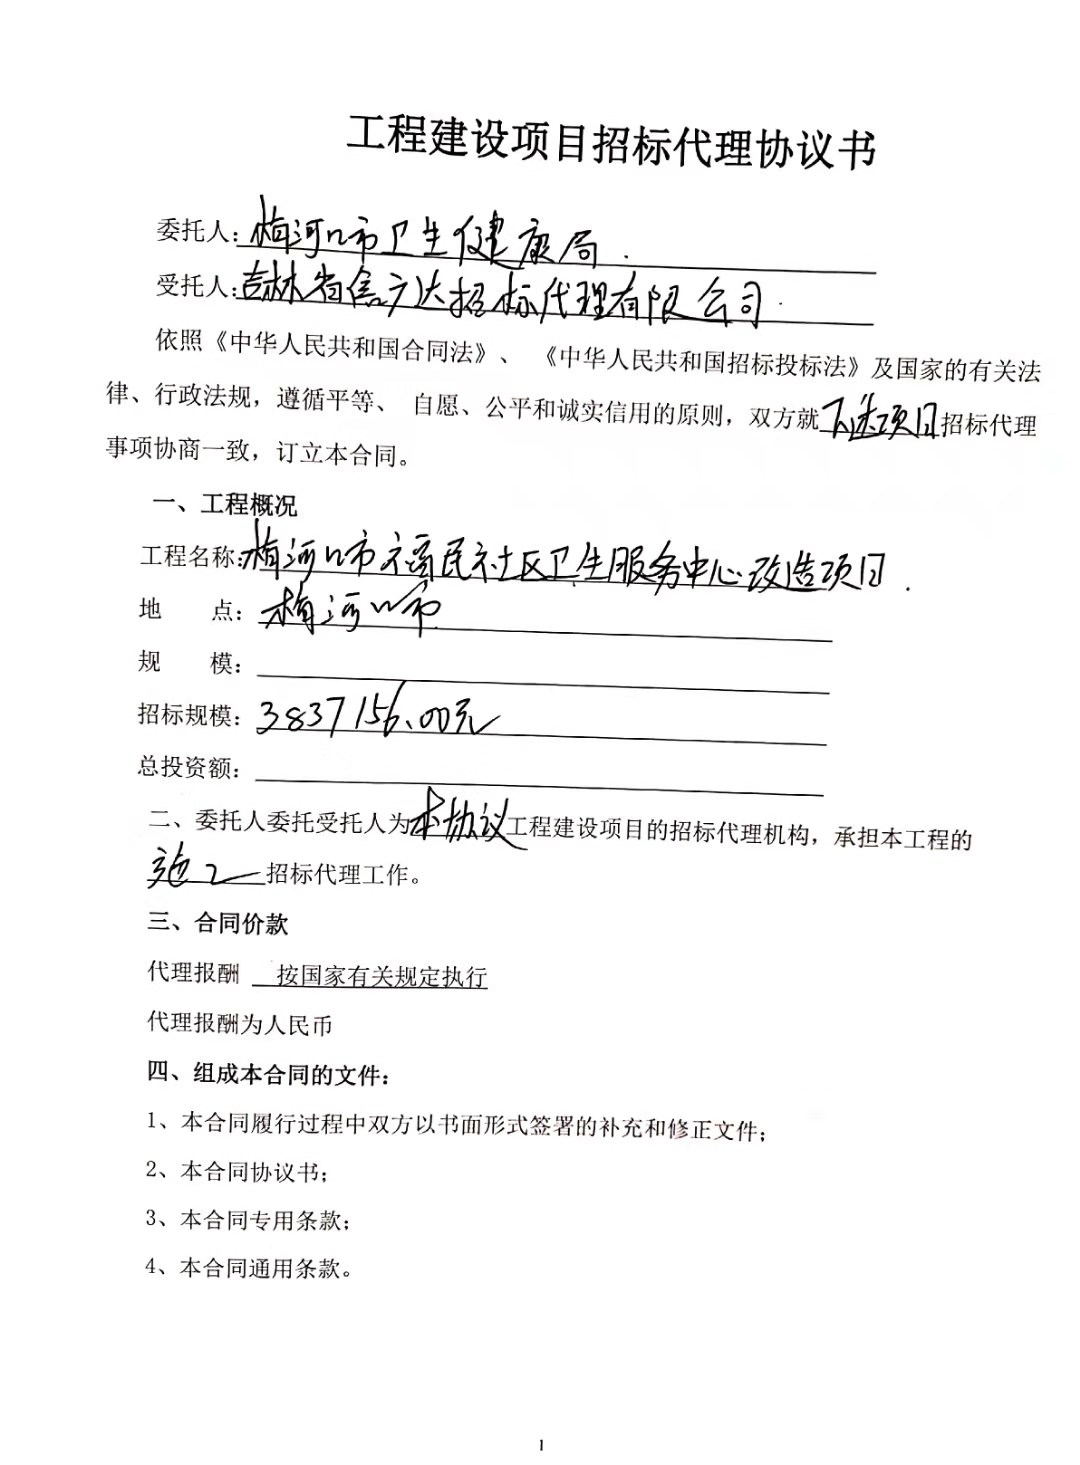 工程建设项目招标代理协议书
委托人:梅河口市卫生健康局.
受托人:吉林省信方达招标代理有限公司.
依照《中华人民共和国合同法》、 《中华人民共和国招标投标法》及国家的有关法
律、行政法规，遵循平等、 自愿、公平和诚实信用的原则，双方就下述项目招标代理
事项协商一致，订立本合同。
一、工程概况
工程名称:梅河口市福民社区卫生服务中心改造项目.
地 点:梅河口市
规 模:
招标规模:3837156.00元
总投资额:
二、委托人委托受托人为本协议工程建设项目的招标代理机构，承担本工程的
施工招标代理工作。
三、合同价款
代理报酬 按国家有关规定执行
代理报酬为人民币
四、组成本合同的文件:
1、本合同履行过程中双方以书面形式签署的补充和修正文件;
2、本合同协议书;
3、本合同专用条款;
4、本合同通用条款。
1